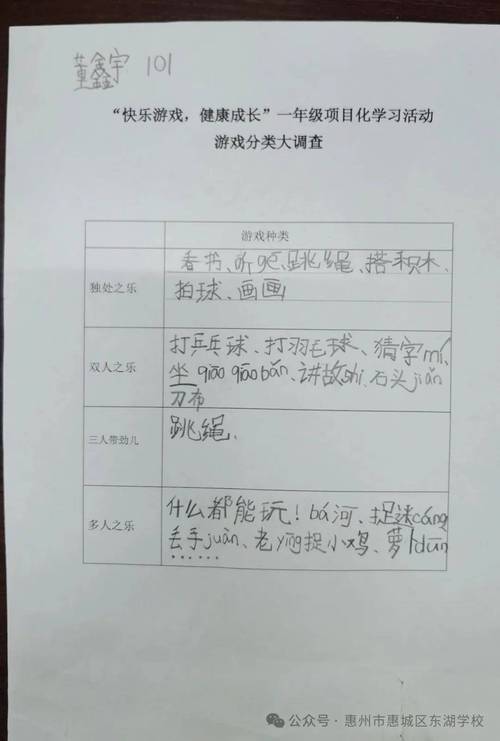 董鑫宇 101
“快乐游戏，健康成长”一年级项目化学习活动
游戏分类大调查
游戏种类
独处之乐
看书、听gē、跳绳、搭积木、
拍球、画画
双人之乐
打乒乓球、打羽毛球、猜字mí、
坐qiāo qiāo bǎn、讲故shi、石头jiǎn
刀布
三人带劲儿
跳绳、
多人之乐
什么都能玩！bá河、捉迷cáng
丢手juàn、老yīng捉小鸡、萝卜dūn
……
公众号·惠州市惠城区东湖学校